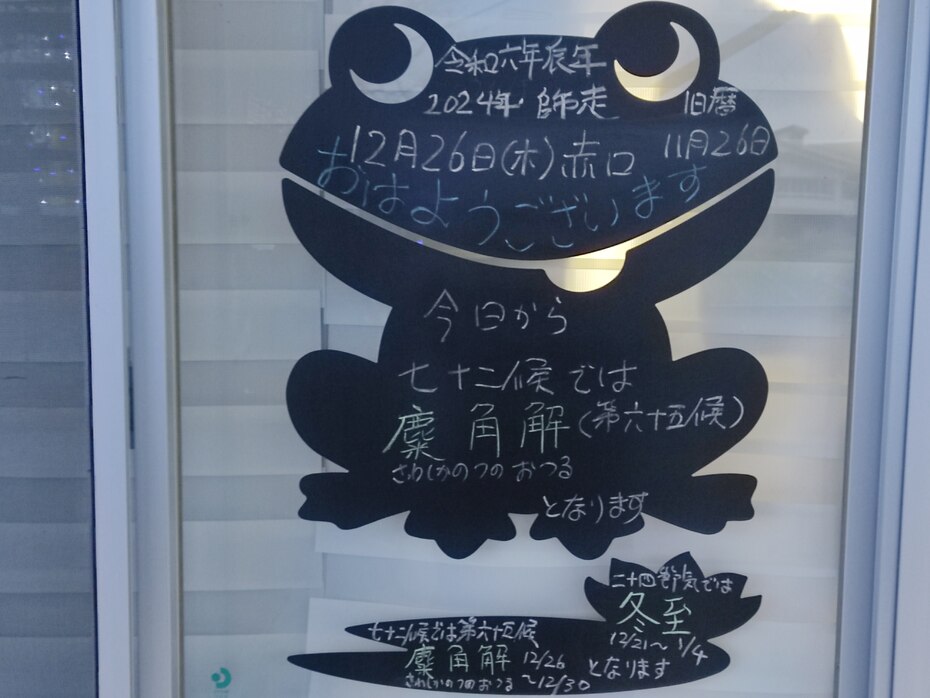 令和六年辰年
2024年 師走 旧暦
12月26日(木)赤口 11月26日
おはようございます
今日から
七十二候では
麋角解(第六十五候)
さわしかのつのおつる
となります
二十四節気では
冬至
12/21～1/4
となります
七十二候では第六十五候
麋角解 12/26～12/30
さわしかのつのおつる